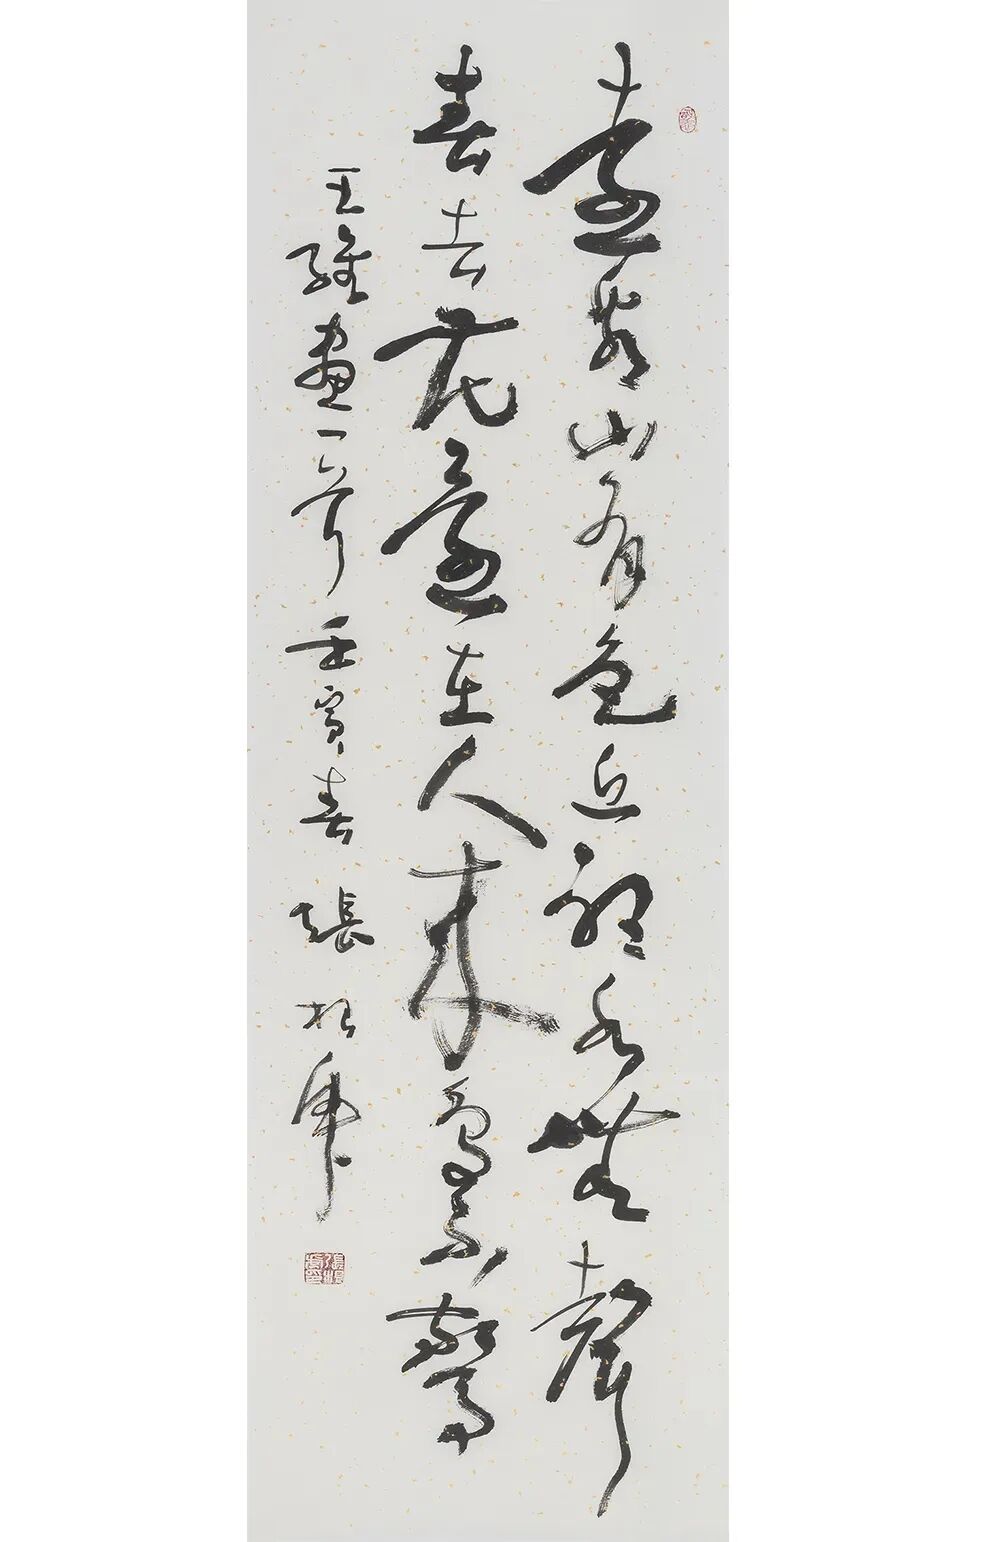 遠看山有色近聽水無聲
春去花還在人來鳥不驚
王維畫一首壬寅春張